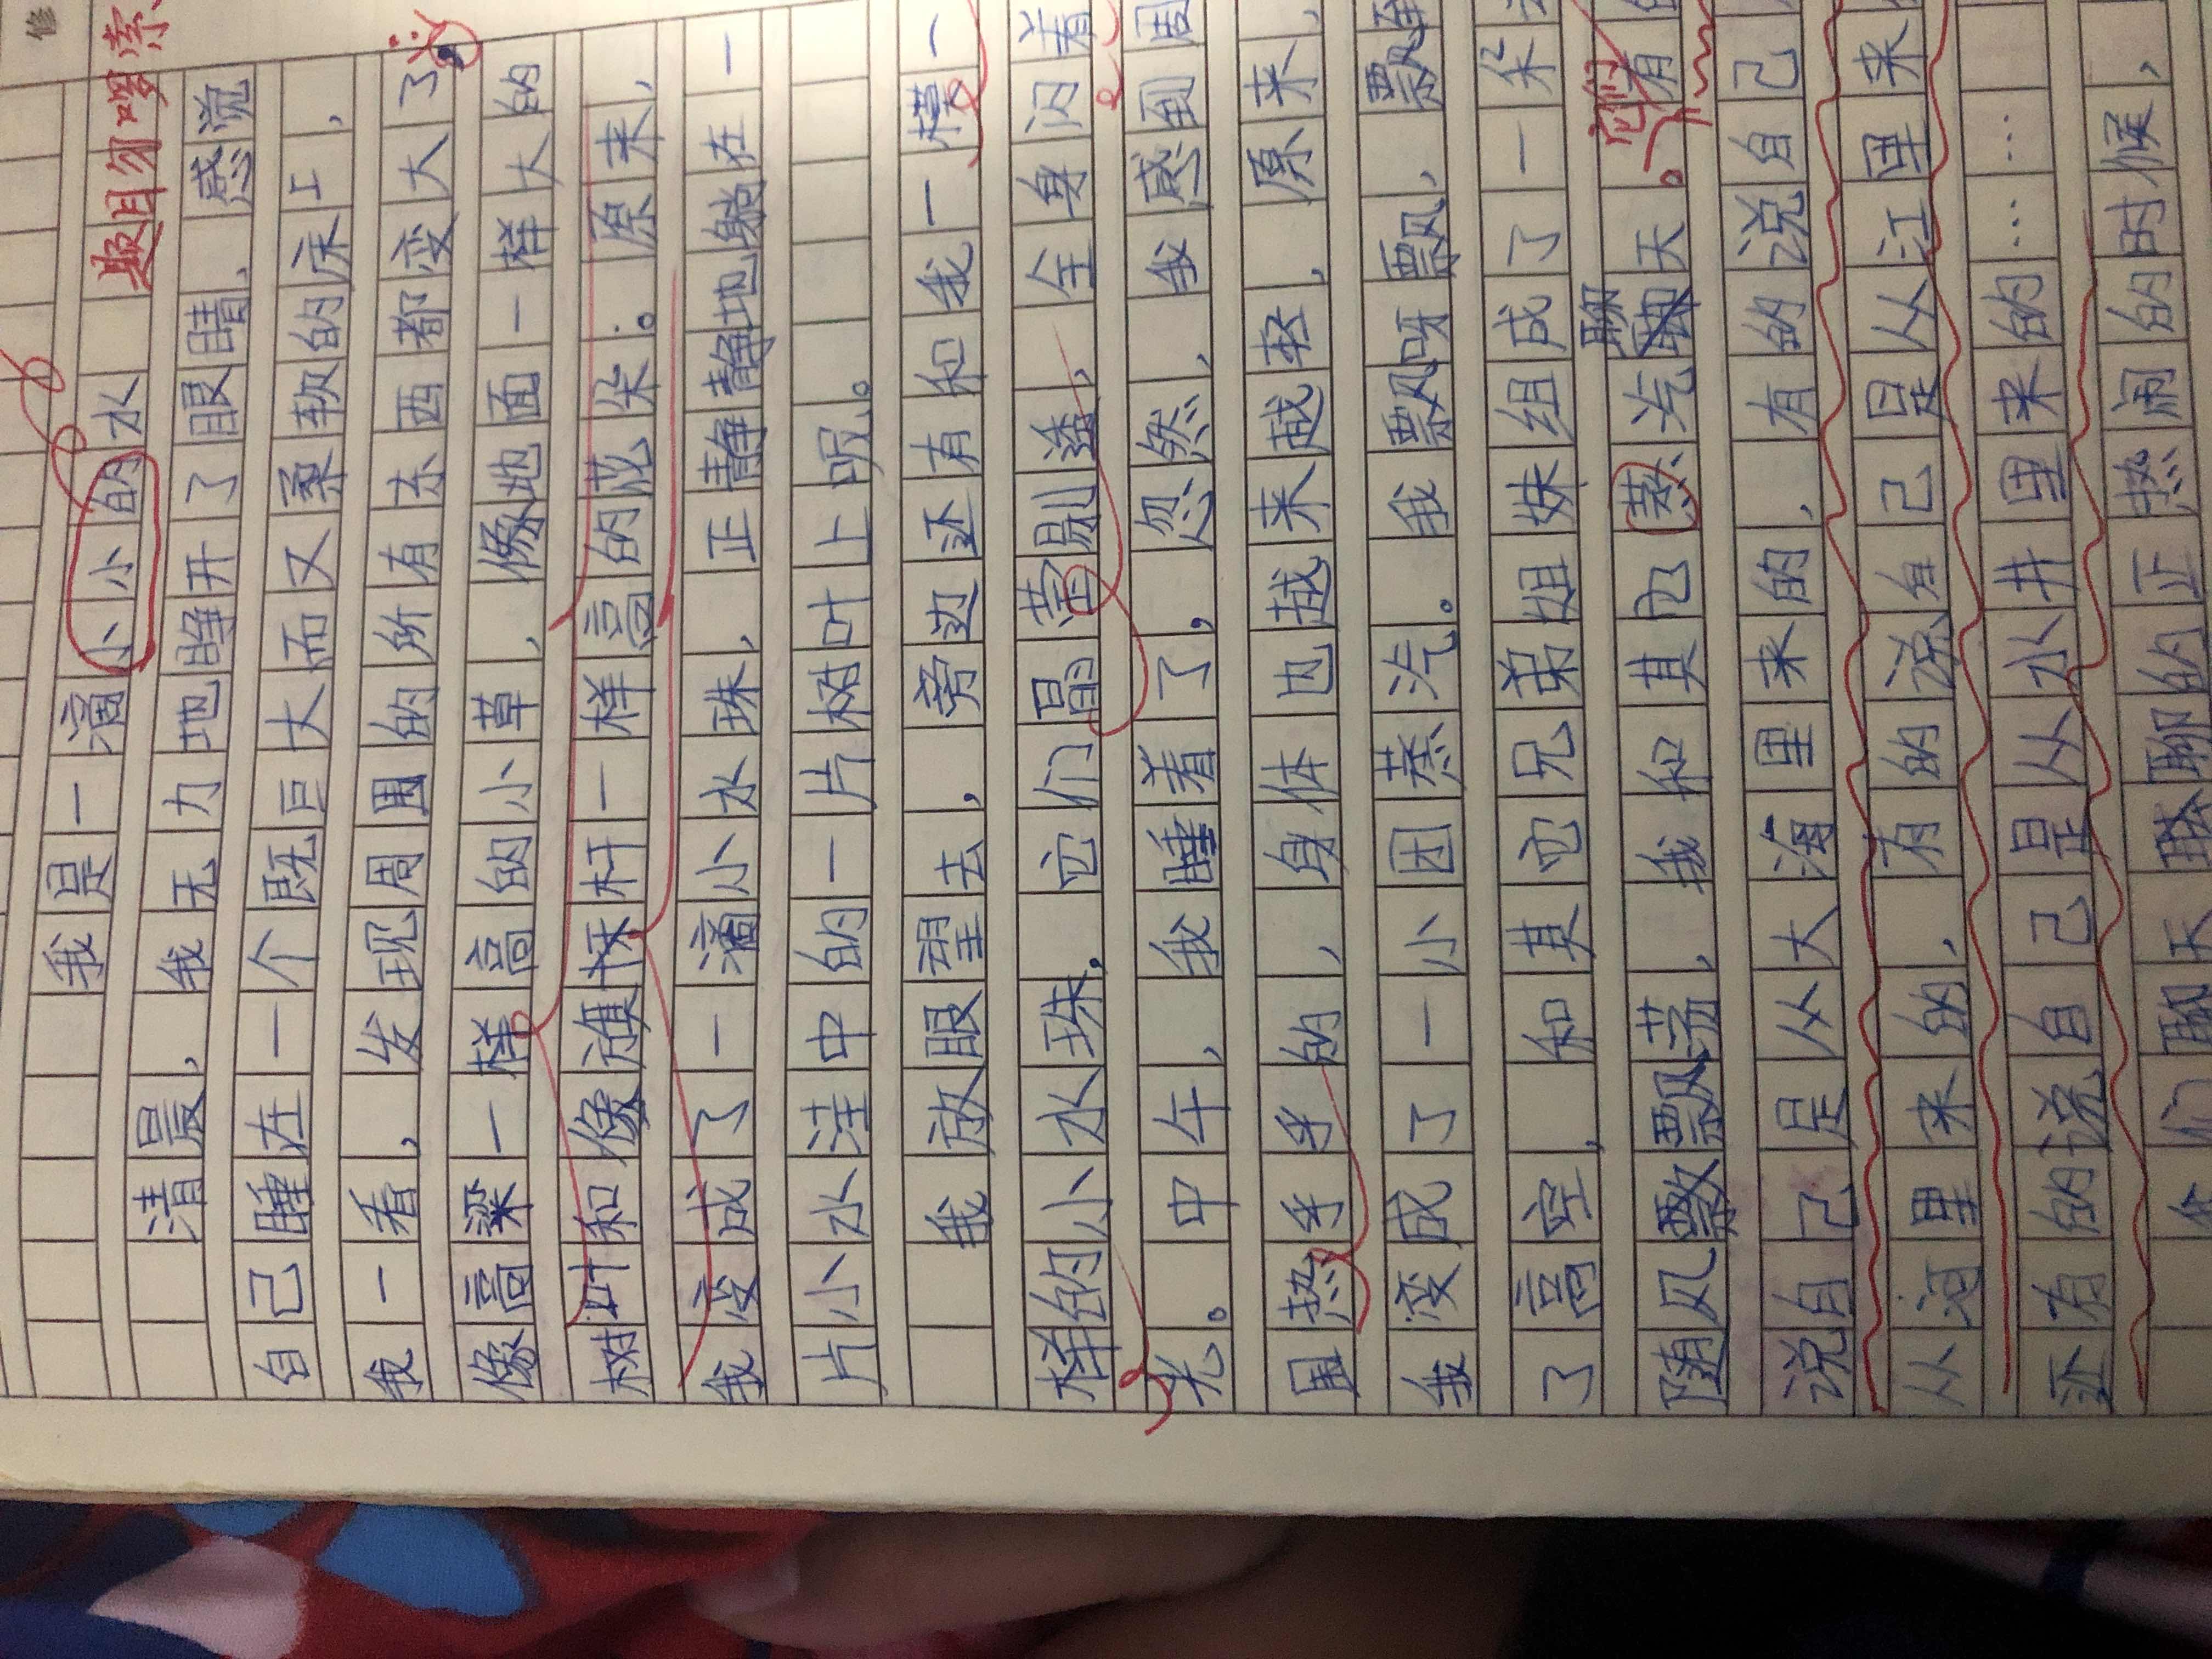 修
题目勿啰索
我是一滴小小的水
清晨，我无力地睁开了眼睛，感觉
自己睡在一个既巨大而又柔软的床上，
我一看，发现周围的所有东西都变大了，
像高粱一样高的小草，像地面一样大的
树叶和像旗杆一样高的花朵。原来，
我变成了一滴小水珠，正静静地躺在一
片小水洼中的一片树叶上呢。
我放眼望去，旁边还有和我一模一
样的小水珠。它们晶莹剔透，全身闪着
光。中午，我睡着了，忽然，我感到周
围热乎乎的，身体也越来越轻，原来，
我变成了一小团蒸汽。我飘呀飘，飘到
了高空，和其它兄弟姐妹组成了一朵
随风飘飘荡，我和其它蒸汽聊天。它们有
说自己是从大海里来的，有的说自己
从河里来的，有的说自己是从江里来
还有的说自己是从水井里来的……
们聊天聊的正热闹的时候，